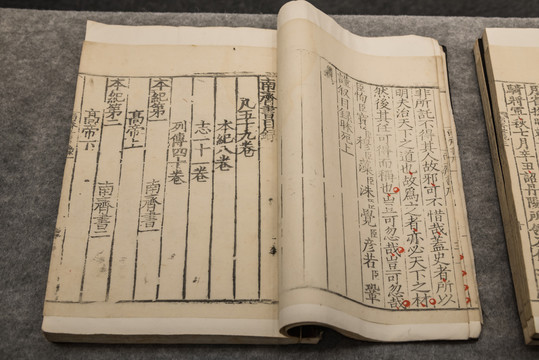 非所託不得其人故邪可不惜哉蓋史者所以
明夫治天下之道也故爲之者亦必天下之材
然後其任可得而稱也豈可忽哉豈可忽哉
臣恂臣寶臣臣穆臣藻臣洙臣覺臣彦若臣鞏
謹叙目録昧死上
南齊書目錄
凡五十九卷
本紀八卷
志十一卷
列傳四十卷
本紀第一
南齊書一
髙帝上
本紀第二
南齊書二
髙帝下